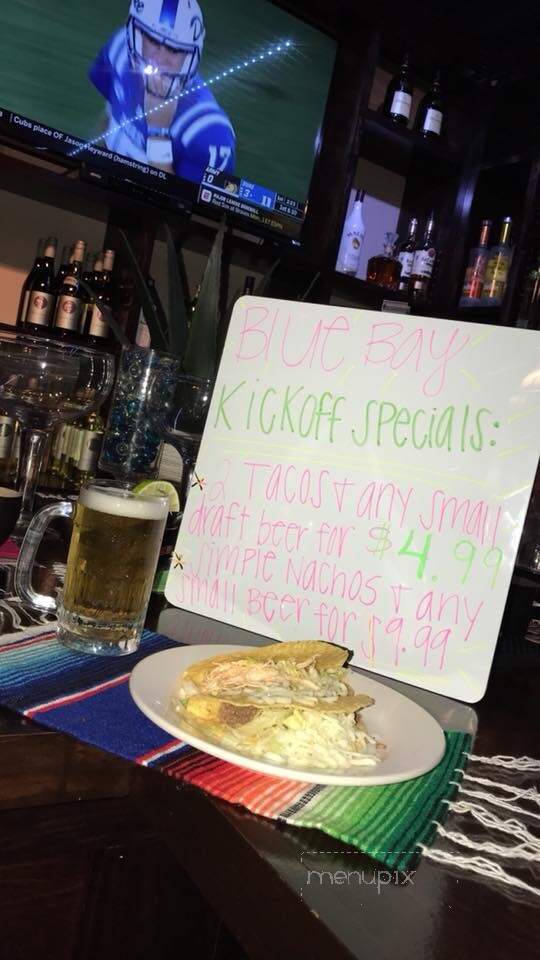 Cubs place OF Jason Heyward (hamstring) on DL
ARMY
0
3
MAJOR LEAGUE BASEBALL
17
Blue Bay
Kickoff Specials:
2 Tacos + any small
draft beer for $4.99
Simple Nachos + any
small Beer for $9.99
menupix